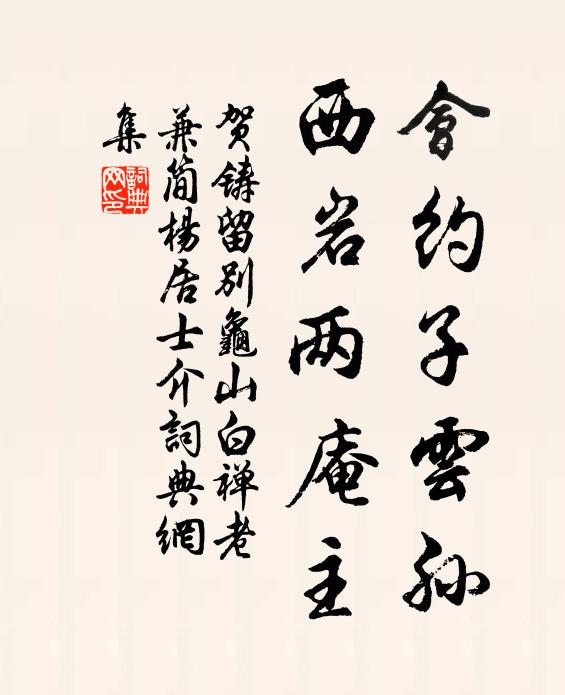 會约子雲孙
西岩两庵主
贺铸留别龜山白禅老
兼简楊居士介詞典網
集
詞典
网印